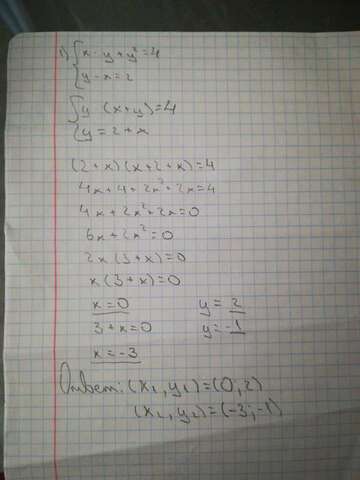 1) { x · y + y² = 4
{ y - x = 2
{ y · (x + y) = 4
{ y = 2 + x
(2 + x) (x + 2 + x) = 4
4x + 4 + 2x² + 2x = 4
4x + 2x² + 2x = 0
6x + 2x² = 0
2x (3 + x) = 0
x (3 + x) = 0
x = 0 y = 2
3 + x = 0 y = -1
x = -3
Ответ: (x₁, y₁) = (0; 2)
(x₂, y₂) = (-3; -1)